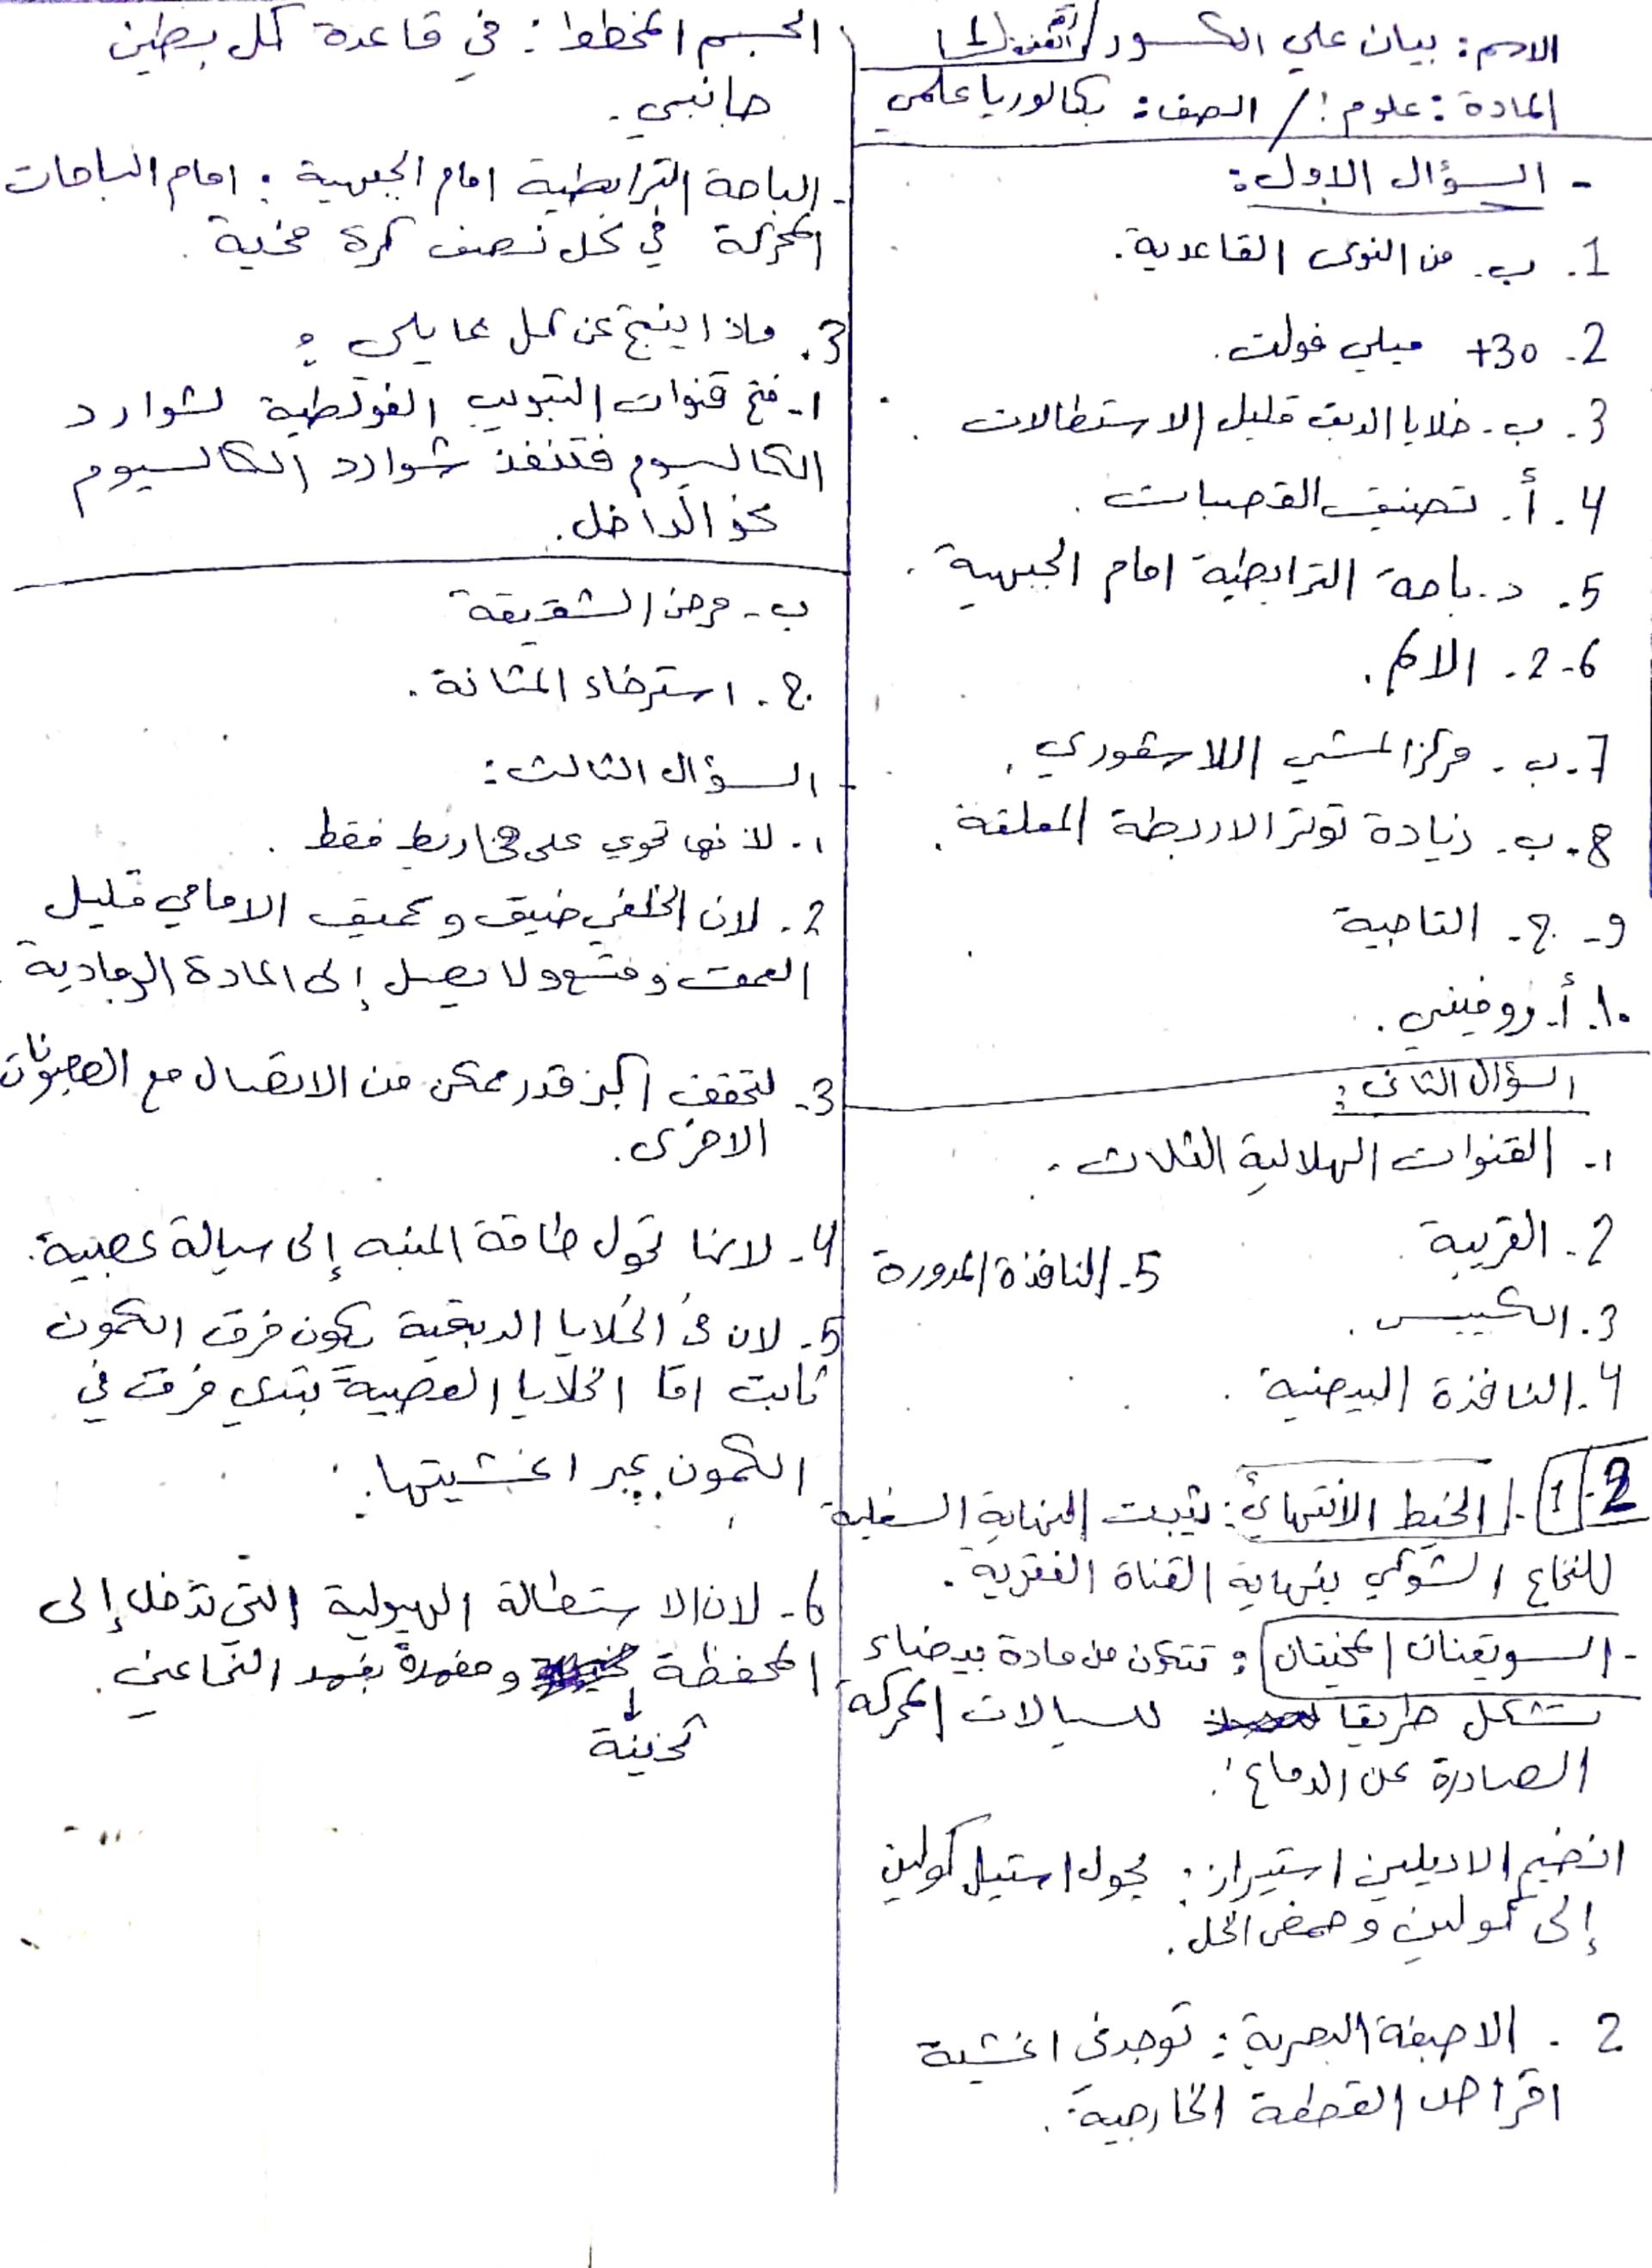 الاسم: بيان علي الكسور /
المادة: علوم / الصف: بكالوريا علمي
- السؤال الاول:
1. ب. من النوى القاعدية.
2. +30 ميلي فولت.
3. ب. خلايا الدبق قليل الاستطالات.
4. أ. تضيق القصبات.
5. د. باحة الترابطية امام الجبهية.
6-2. الالم.
7. ب. مركز المشي اللاشعوري.
8. ب. زيادة توتر الاربطة المعلقة.
9- ج. التاجية
10. أ. روفيني.
السؤال الثاني:
1. القنوات الهلالية الثلاث.
2. القريبة
3. الكييس.
4. النافذة البيضية.
5. النافذة المدورة
2. 1. الخيط الانتهائي: يثبت النهاية السفلية
للنخاع الشوكي بنهاية القناة الفقرية.
- السويقتان المخيتان: تتكون من مادة بيضاء
تشكل طريقا للسيالات المحركة
الصادرة عن الدماغ.
انضيم الاديلين استيراز: يحول استيل كولين
إلى كولين وحمض الخل.
2. الاصبغة البصرية: توجد في اغشية
اقراص القطعة الخارجية.
الجسم المخطط: في قاعدة كل بطين
جانبي.
- الباحة الترابطية امام الجبهية: امام الباحات
المحركة في كل نصف كرة مخية.
3. ماذا ينتج عن كل مما يلي:
1- فتح قنوات التبويب الفولطية لشوارد
الكالسيوم فتنفذ شوارد الكالسيوم
نحو الداخل.
ب- مرض الشقيقة
ج. استرخاء المثانة.
السؤال الثالث:
1. لانها تحوي على مخاريط فقط.
2. لان الخلفي ضيق وعميق الامامي قليل
العمق ومتسع ولا يصل إلى المادة الرمادية.
3- لتحقق اكبر قدر ممكن من الاتصال مع العصبونات
الاخرى.
4- لانها تحول طاقة المنبه إلى سيالة عصبية.
5- لان في الخلايا الدبقية يكون فرق الكمون
ثابت اما الخلايا العصبية تبدي فرق في
الكمون عبر اغشيتها.
6- لان الاستطالة الهيولية التي تدخل إلى
المحفظة ومغمدة بغمد النخاعين.
ثخينة